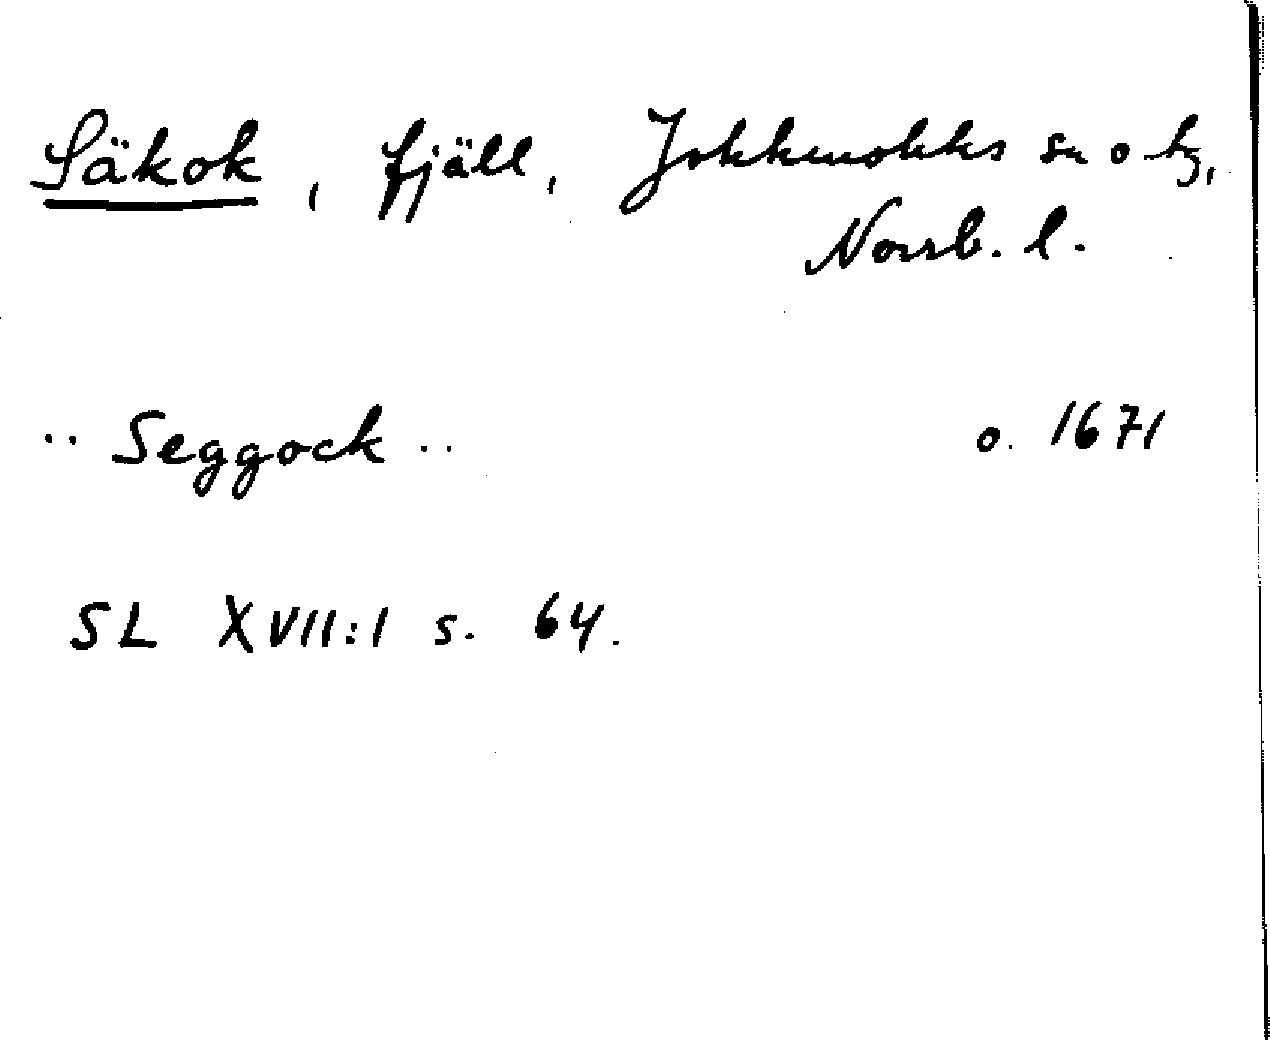 Säkok, fjäll, Jokkmokks sn o tg,
Norrb. l.
.. Seggock .. o. 1671
SL XVII:1 s. 64.